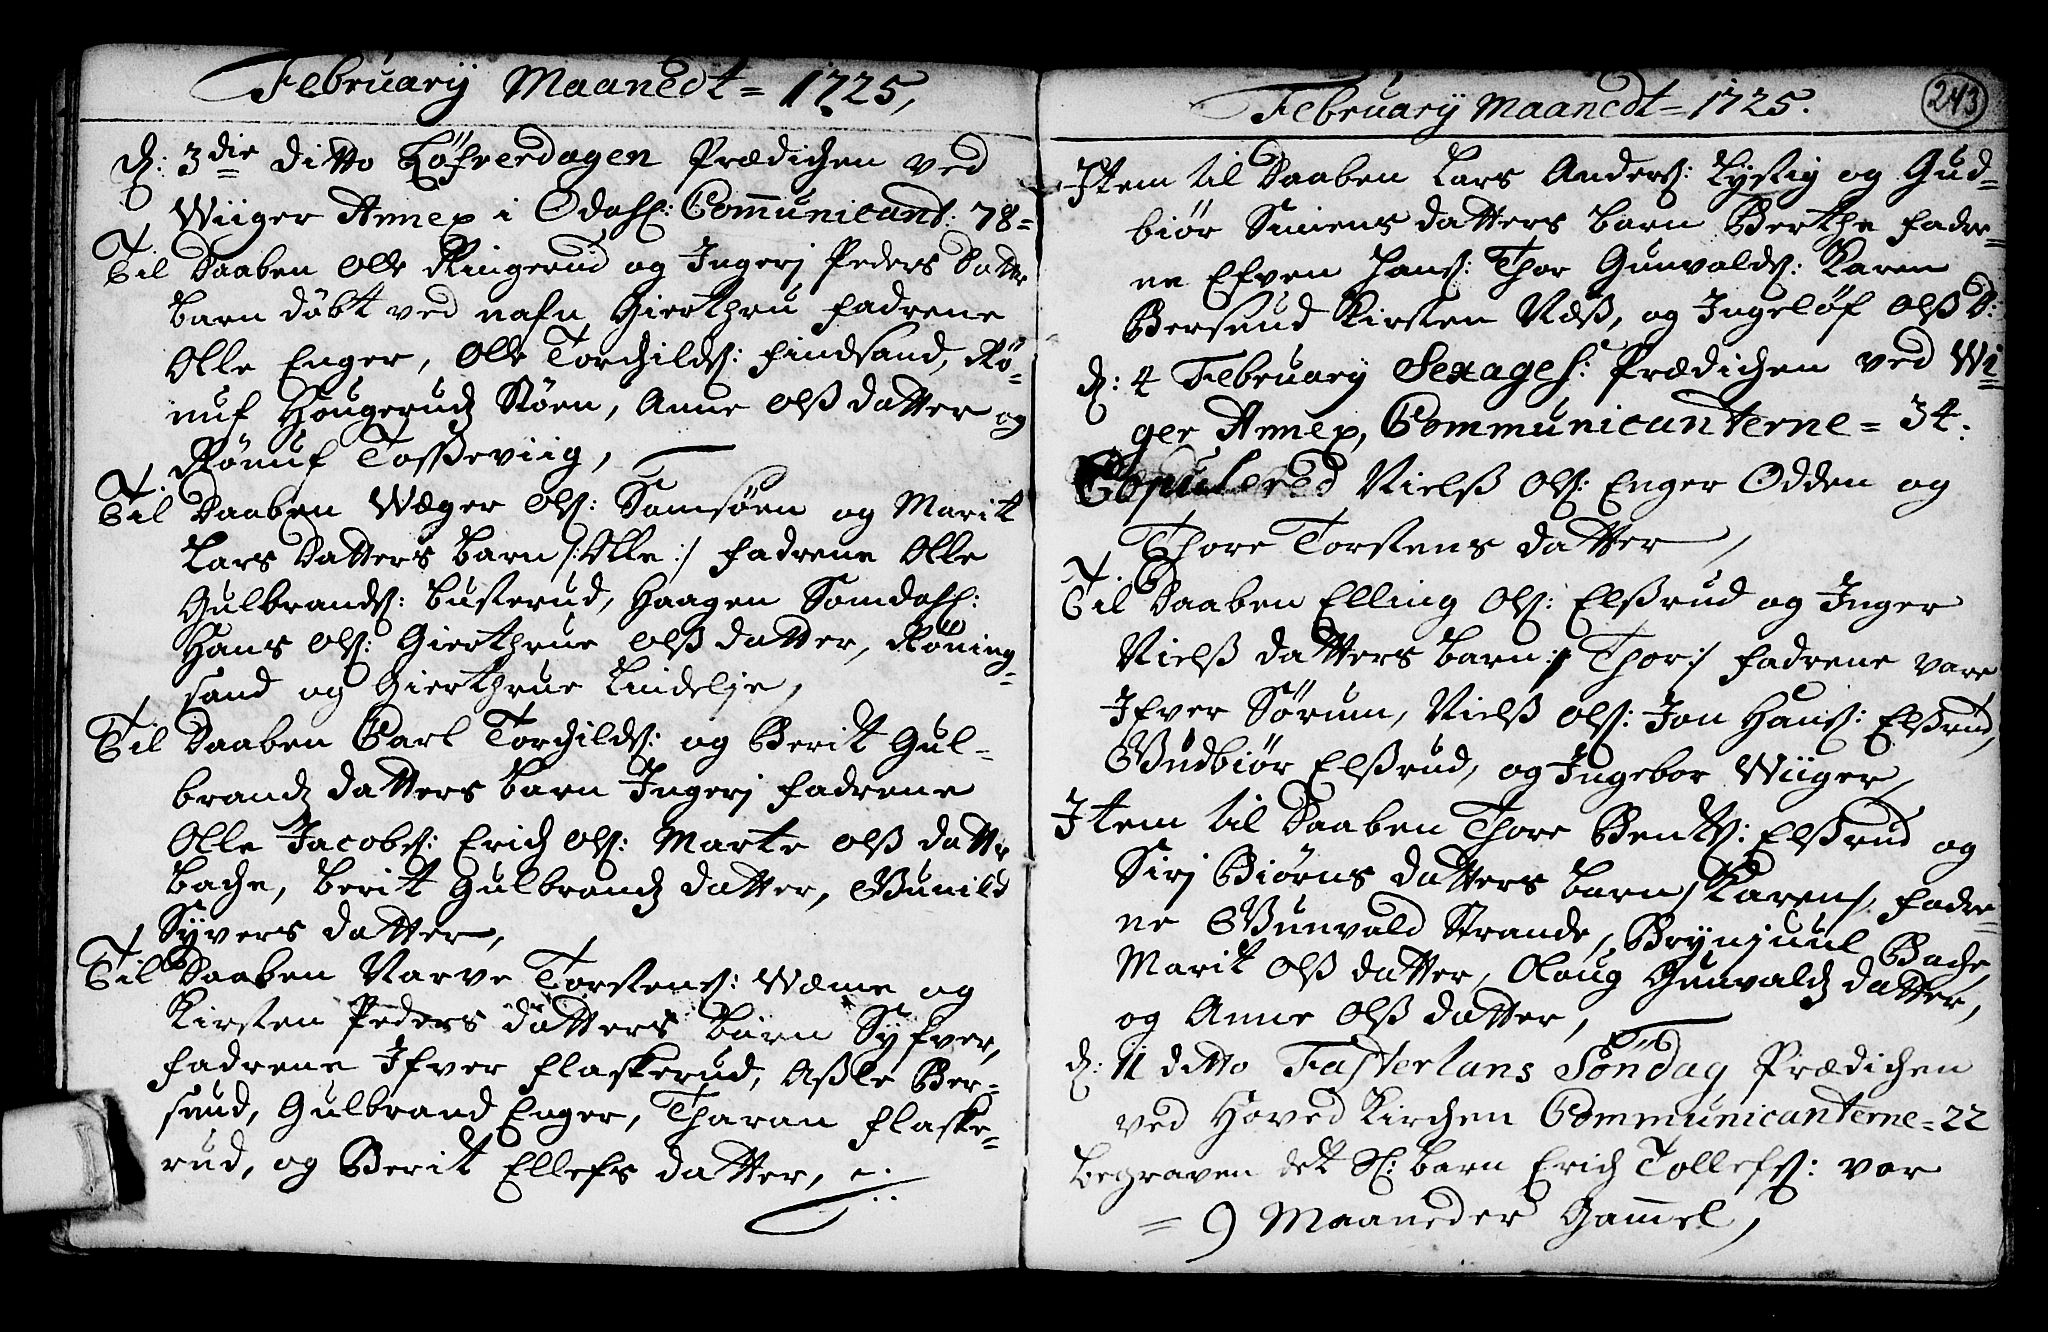 February Maanedt = 1725,
d: 3die ditto Løfverdagen Prædichen ved
Wiiger Annex i Odahl: Communicant: 78=
Til Daaben Olle Ringerud og Ingerj Peders Datter
barn døbt ved nafn Gierthru Fadrene
Olle Enger, Olle Torchilds: Findsand, Rø-
nuf Hougerudz Røen, Anne Olß datter og
Rønuf Toßeviig,
Til Daaben Wæger Ols: Samsøen og Marit
Lars Datters barn /:Olle:/ Fadrene Olle
Gulbrands: Busterud, Haagen Somdahl:
Hans Ols: Gierthrue Olß datter, Røning-
sand og Gierthrue Lindelje,
Til Daaben Carl Torchilds: og Berit Gul-
brandz datters barn Ingerj Fadrene
Olle Jacobs: Erich Ols: Marte Olß datter
Bache, Berit Gulbrandz datter, Gunild
Syvers datter,
Til Daaben Narve Torstens: Wæme og
Kirsten Peders datters barn Syfver,
Fadrene Ifver Flaskerud, Aßle Ber-
serud, Gulbrand Enger, Tharan Flaske-
rud, og Berit Ellefs datter,
243
February Maanedt = 1725.
Item til Daaben Lars Anders: Lystig og Gud-
biør Simens datters barn Berthe Fadre-
ne Efven Hans: Thor Gunvalds: Karen
Berserud Kirsten Næß, og Ingeløf Olß D:
d: 4 February Sexages: Prædichen ved Wi-
ger Annex, Communicanterne = 34.
Copulered Nielß Ols: Enger Odden og
Thore Torstens datter,
Til Daaben Elling Ols: Elßrud og Inger
Nielß datters barn /: Thor:/ Fadrene vare
Ifver Sørum, Nielß Ols: Jon Hans: Elßrud,
Gudbiør Elßrud, og Ingebor Wiiger,
Item til Daaben Thore Bents: Elßrud og
Sirj Biørns datters barn /Karen/, Fadre-
ne Gunvald Strande, Brynjuul Bache,
Marit Olß datter, Olaug Gunvaldz datter,
og Anne Olß datter,
d: 11 ditto Fasterlans Søndag Prædichen
ved Hoved Kirchen Communicanterne = 22
Begraven det Sl: barn Erich Tollefs: var
= 9 Maaneder Gammel,